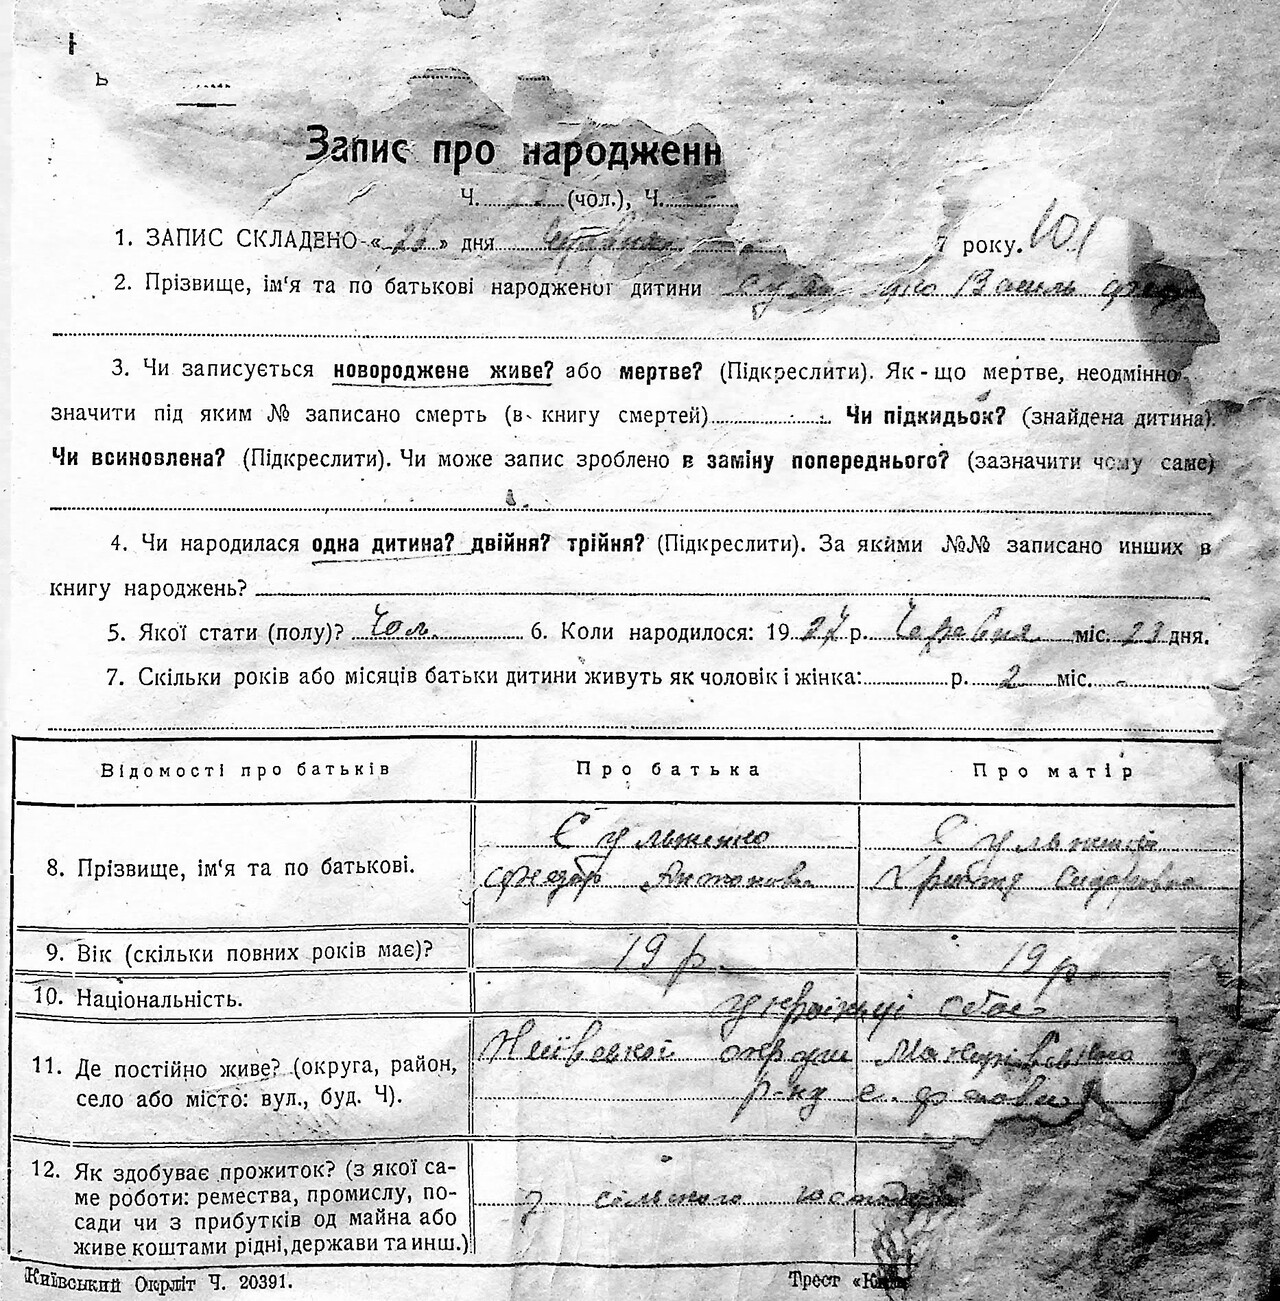 Запис про народженн
Ч. (чол.), Ч.
1. ЗАПИС СКЛАДЕНО «26» дня Червня 7 року. 101
2. Прізвище, ім'я та по батькові народженої дитини Василь
3. Чи записується новороджене живе? або мертве? (Підкреслити). Як-що мертве, неодмінно
значити під яким № записано смерть (в книгу смертей) Чи підкидьок? (знайдена дитина).
Чи всиновлена? (Підкреслити). Чи може запис зроблено в заміну попереднього? (зазначити чому саме)
4. Чи народилася одна дитина? двійня? трійня? (Підкреслити). За якими №№ записано инших в
книгу народжень?
5. Якої стати (полу)? Чол. 6. Коли народилося: 1927 р. Червня міс. 23 дня.
7. Скільки років або місяців батьки дитини живуть як чоловік і жінка: р. 2 міс. -
Відомості про батьків Про батька Про матір
8. Прізвище, ім'я та по батькові.
Федір Антонов Сидоровна
9. Вік (скільки повних років має)? 19 р. 19 р.
10. Національність. українці обоє
11. Де постійно живе? (округа, район,
село або місто: вул., буд. Ч).
Київської округи Макарівського
р-ну с.
12. Як здобуває прожиток? (з якої са-
ме роботи: ремества, промислу, по-
сади чи з прибутків од майна або
живе коштами рідні, держави та инш.)
з сільського господ
Київський Окрліт Ч. 20391. Трест «Ки